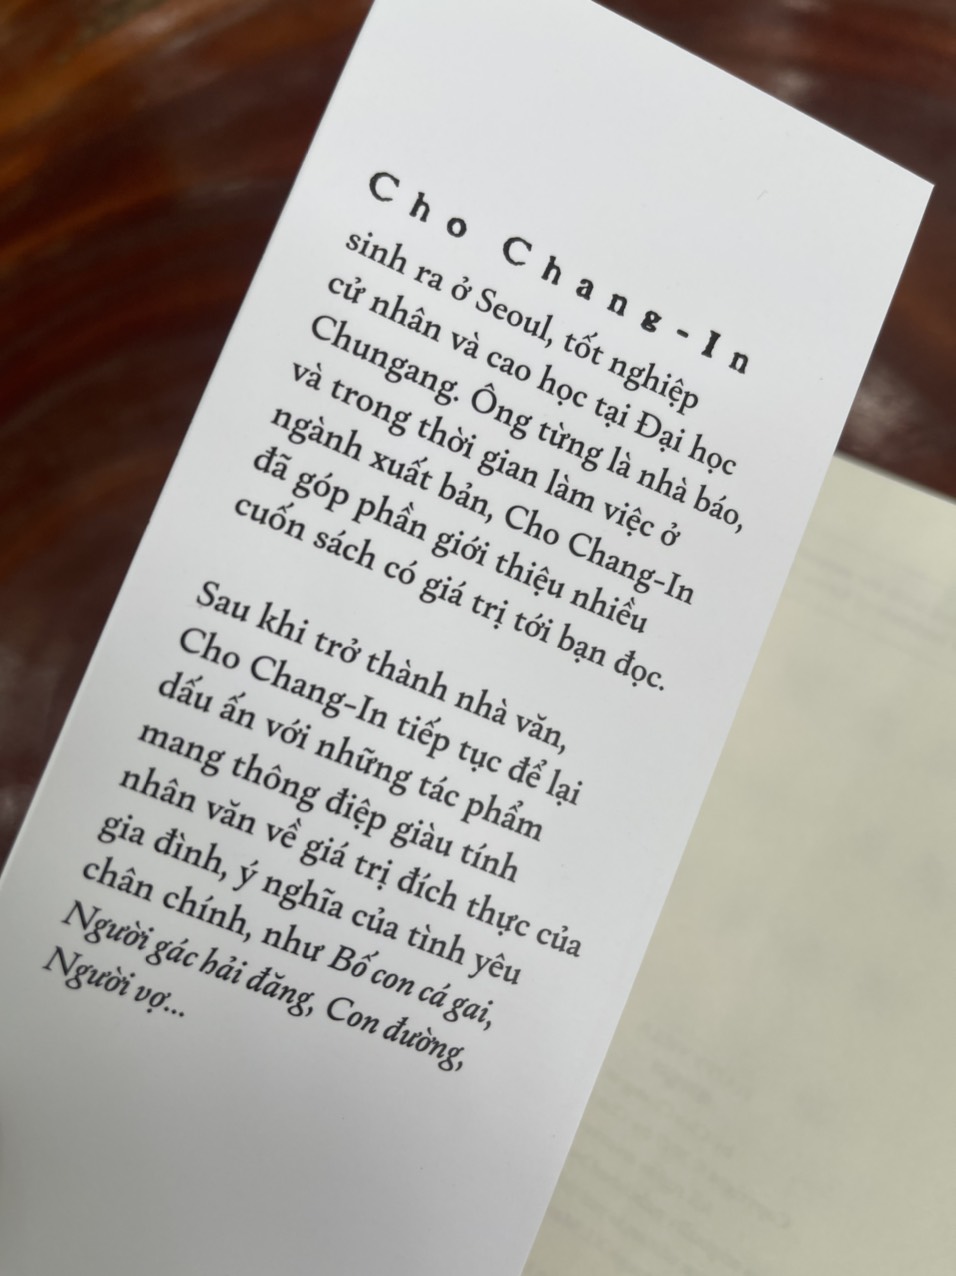 Cho Chang-In
sinh ra ở Seoul, tốt nghiệp
cử nhân và cao học tại Đại học
Chungang. Ông từng là nhà báo,
và trong thời gian làm việc ở
ngành xuất bản, Cho Chang-In
đã góp phần giới thiệu nhiều
cuốn sách có giá trị tới bạn đọc.
Sau khi trở thành nhà văn,
Cho Chang-In tiếp tục để lại
dấu ấn với những tác phẩm
mang thông điệp giàu tính
nhân văn về giá trị đích thực của
gia đình, ý nghĩa của tình yêu
chân chính, như Bố con cá gai,
Người gác hải đăng, Con đường,
Người vợ...